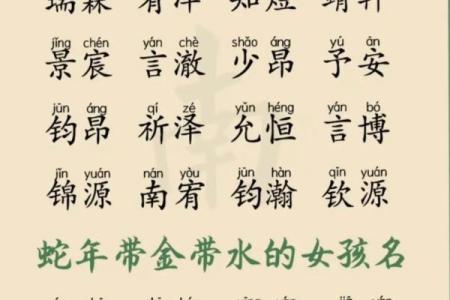 瑞霖 有泽 知煜 靖轩
jǐng chén yán chè shǎo áng yú ān
景宸 言澈 少昂 予安
jūn áng qí zé yǔn héng yán bó
钧昂 祈泽 允恒 言博
jǐn yuán nán yòu jūn hàn qīn yuán
锦源 南宥 钧瀚 钦源
蛇年带金带水的女孩名